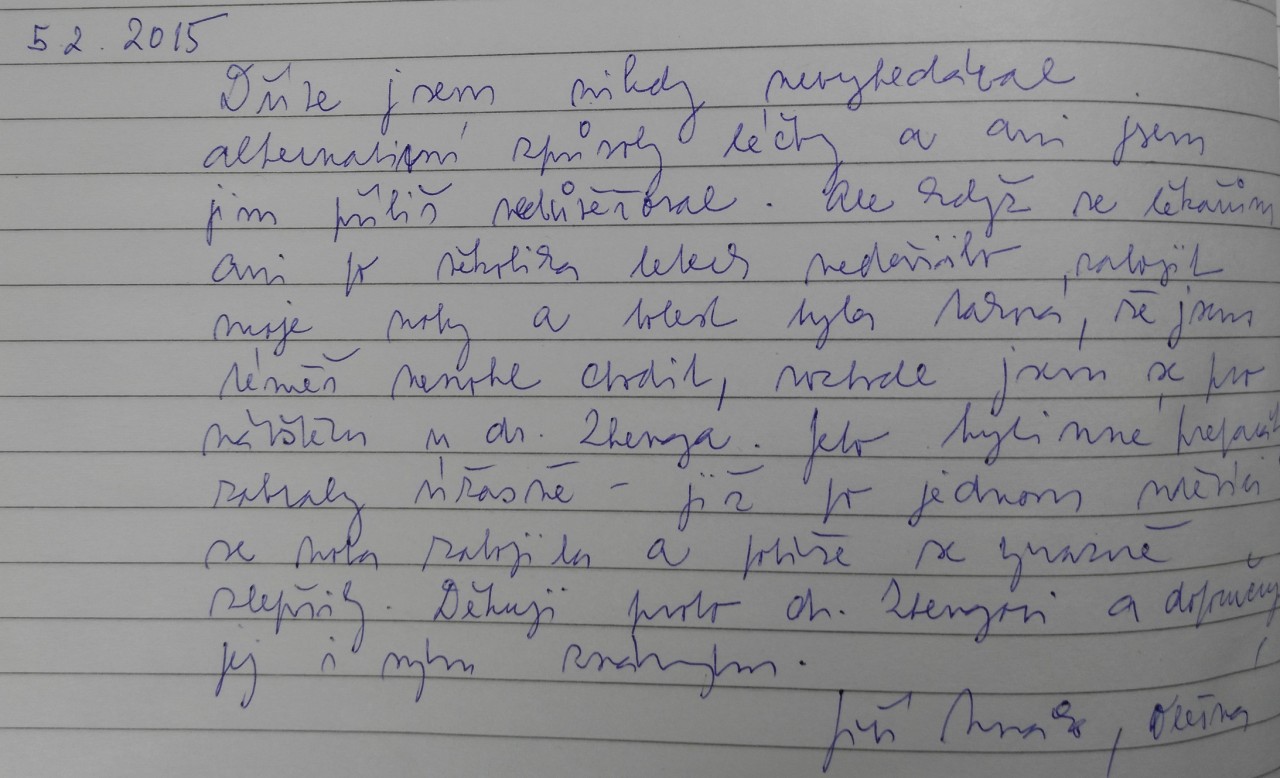 5 2. 2015
Dříve jsem nikdy nevyhledával
alternativní způsoby léčby a ani jsem
jim příliš nedůvěřoval. Ale když se lékařům
ani po několika letech nedařilo zahojit
moje nohy a bolest byla taková, že jsem
téměř nemohl chodit, rozhodl jsem se pro
návštěvu u dr. Zhenga. Jeho bylinné preparáty
zabraly úžasně – již po jednom měsíci
se noha zahojila a potíže se výrazně
zlepšily. Děkuji proto dr. Zhengovi a doporučuji
jej i svým známým.
Jiří